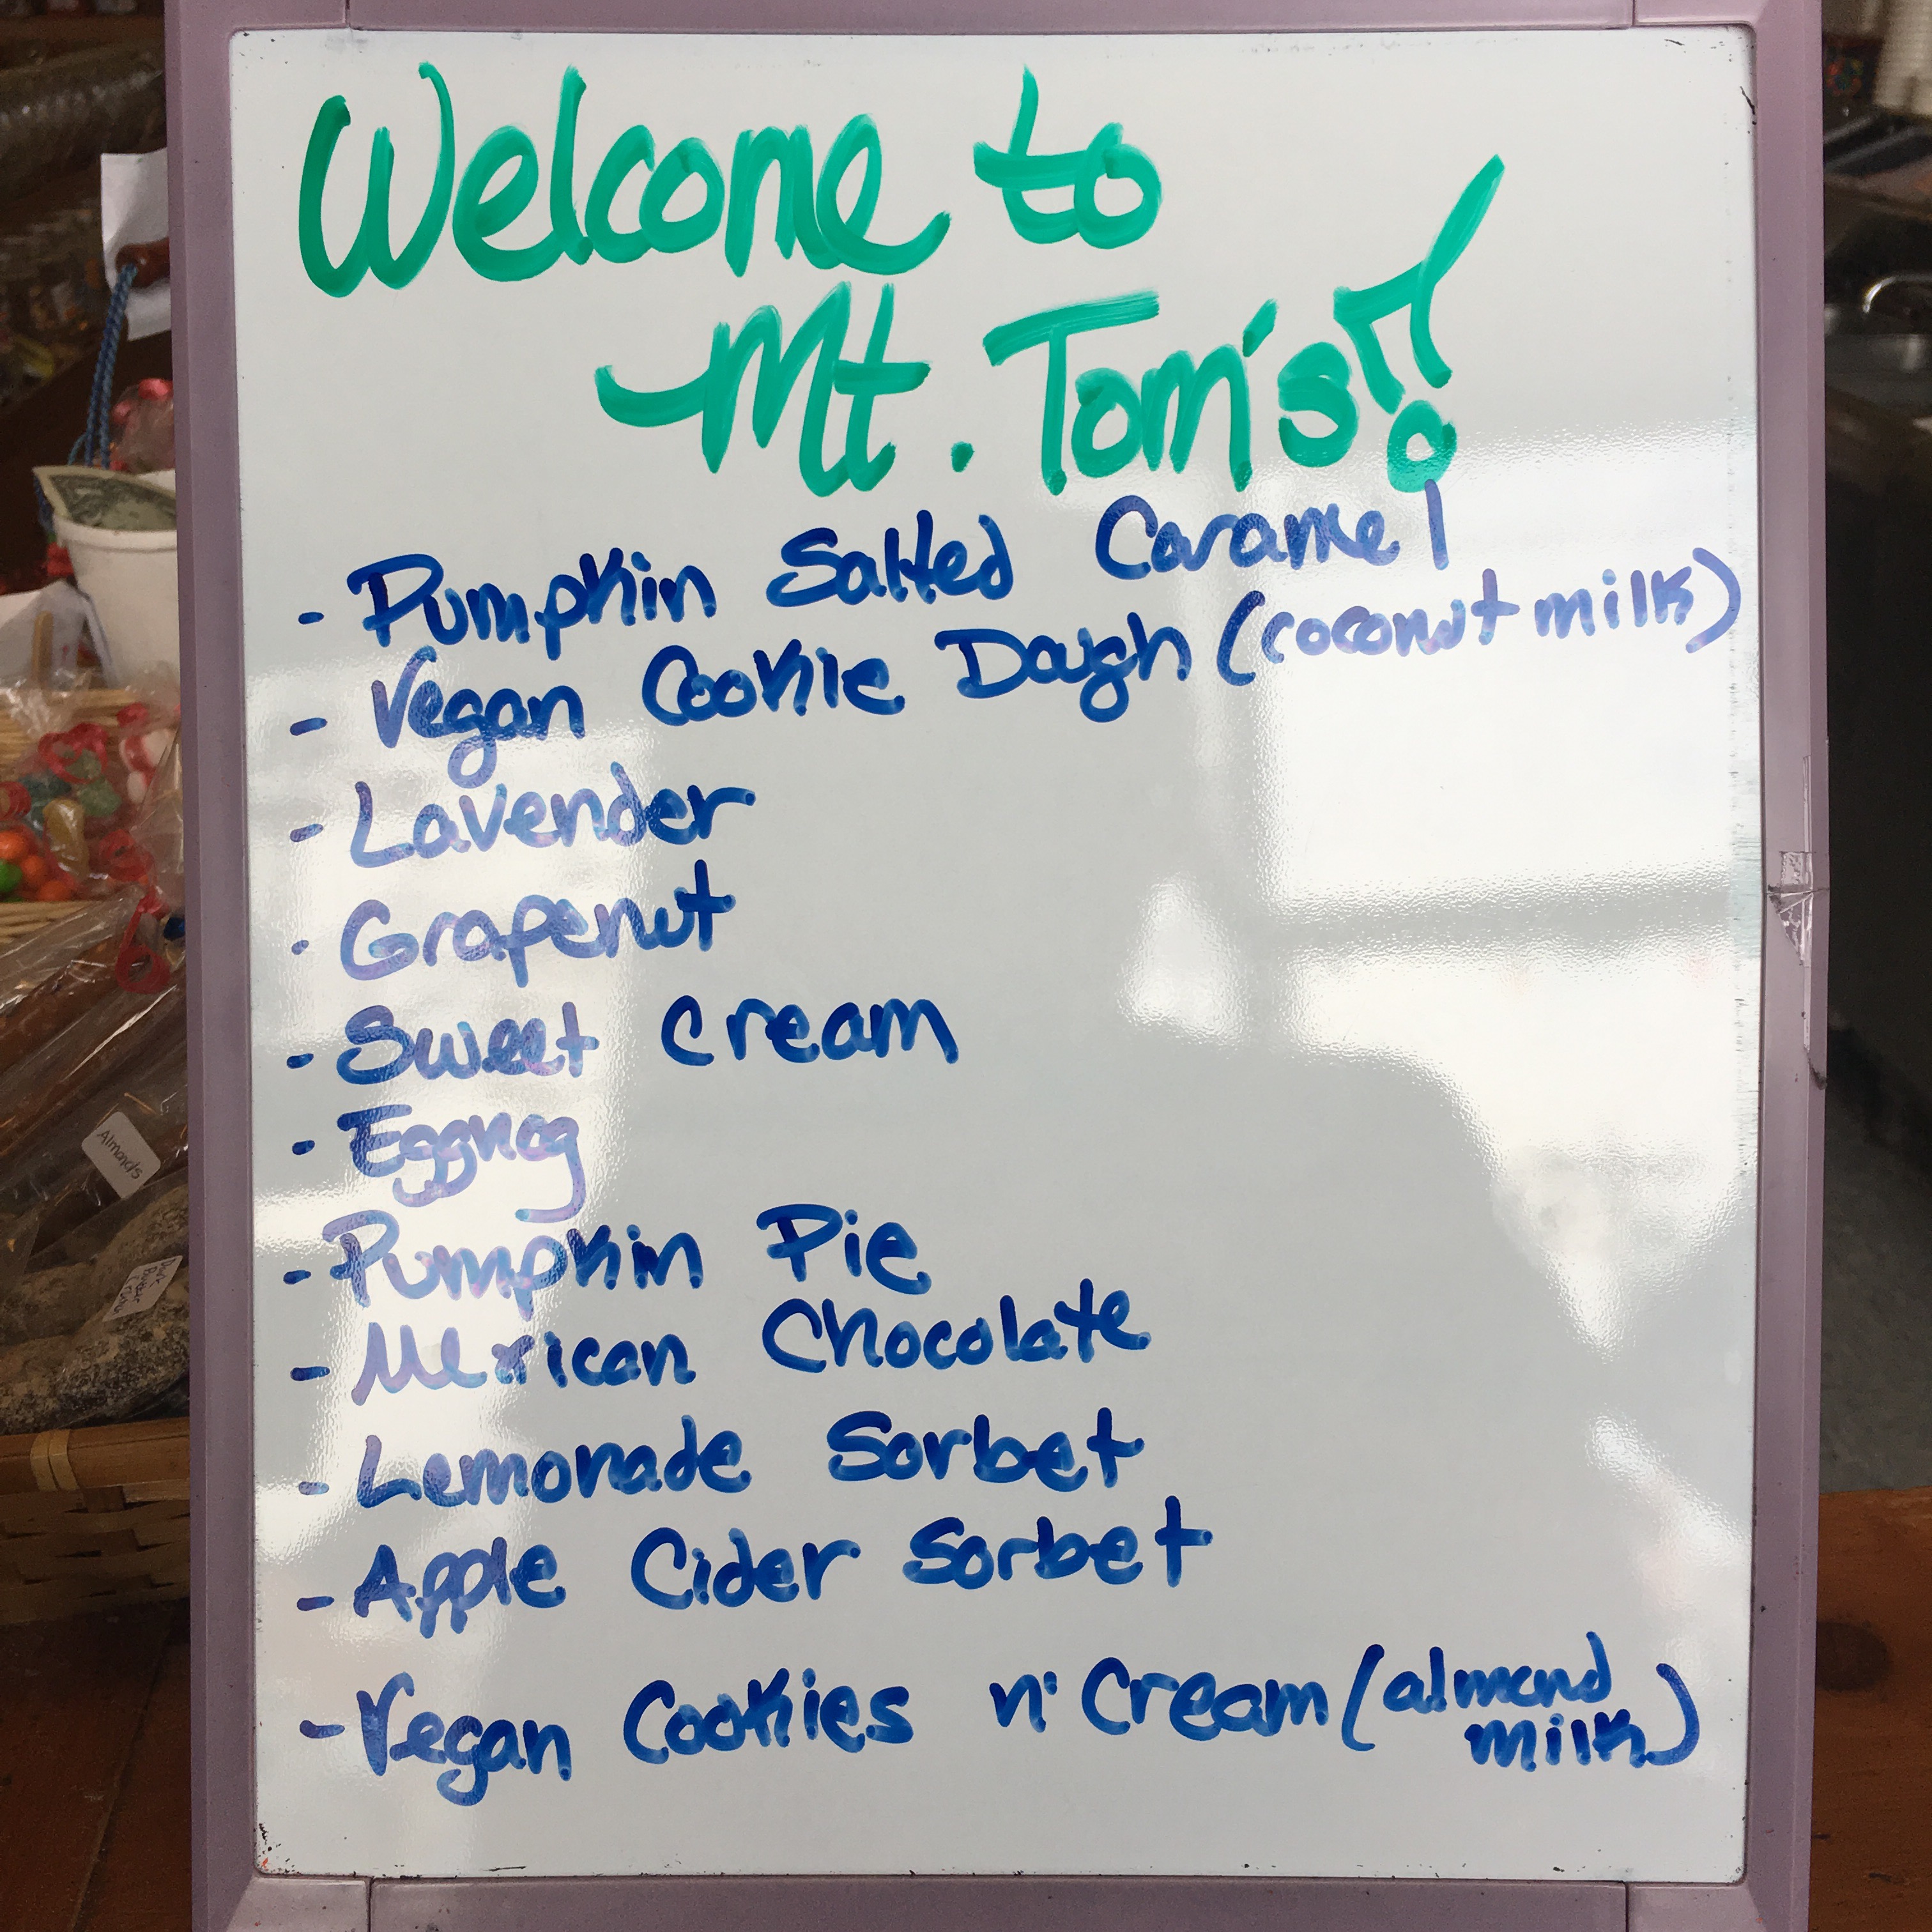 Welcome to
Mt. Tom's!
- Pumpkin Salted Caramel
- Vegan Cookie Dough (coconut milk)
- Lavender
- Grapenut
- Sweet Cream
- Eggnog
- Pumpkin Pie
- Mexican Chocolate
- Lemonade Sorbet
- Apple Cider Sorbet
- Vegan Cookies n' Cream (almond
milk)
Almonds